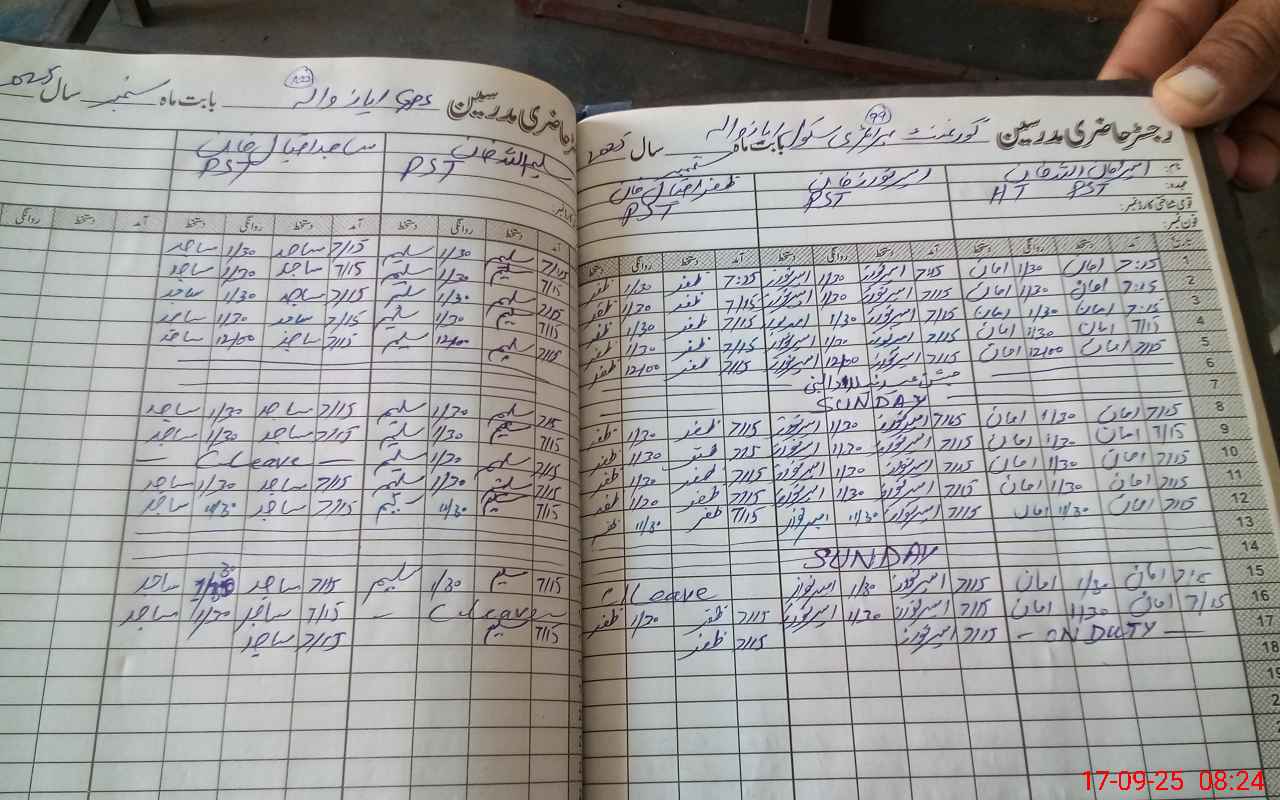 رجسٹر حاضری مدرسین گورنمنٹ پرائمری سکول ایاز والہ بابت ماہ ستمبر سال 2025
99
نام: امیر امان اللہ خان امیر نواز خان ظفر اقبال خان
عہدہ: HT PST PST PST
قومی شناختی کارڈ نمبر:
فون نمبر:
تاریخ آمد دستخط روانگی دستخط آمد دستخط روانگی دستخط آمد دستخط روانگی دستخط
1 7:15 امان 1/30 امان 7/15 امیر نواز 1/30 امیر نواز 7:15 ظفر 1/30 ظفر
2 7:15 امان 1/30 امان 7/15 امیر نواز 1/30 امیر نواز 7/15 ظفر 1/30 ظفر
3 7:15 امان 1/30 امان 7/15 امیر نواز 1/30 امیر نواز 7/15 ظفر 1/30 ظفر
4 7/15 امان 1/30 امان 7/15 امیر نواز 1/30 امیر نواز 7/15 ظفر 1/30 ظفر
5 7/15 امان 12/00 امان 7/15 امیر نواز 12/00 امیر نواز 7/15 ظفر 12/00 ظفر
6 جشن عید میلاد النبی
7 SUNDAY
8 7/15 امان 1/30 امان 7/15 امیر نواز 1/30 امیر نواز 7/15 ظفر 1/30 ظفر
9 7/15 امان 1/30 امان 7/15 امیر نواز 1/30 امیر نواز 7/15 ظفر 1/30 ظفر
10 7/15 امان 1/30 امان 7/15 امیر نواز 1/30 امیر نواز 7/15 ظفر 1/30 ظفر
11 7/15 امان 1/30 امان 7/15 امیر نواز 1/30 امیر نواز 7/15 ظفر 1/30 ظفر
12 7/15 امان 11/30 امان 7/15 امیر نواز 11/30 امیر نواز 7/15 ظفر 11/30 ظفر
13
14 SUNDAY
15 7/15 امان 1/30 امان 7/15 امیر نواز 1/30 امیر نواز Leave
16 7/15 امان 1/30 امان 7/15 امیر نواز 1/30 امیر نواز 7/15 ظفر 1/30 ظفر
17 - ON DUTY - 7/15 امیر نواز 7/15 ظفر
18
19
حاضری مدرسین GPS ایاز والہ بابت ماہ ستمبر سال 2025
سلیم اللہ خان ساجد اقبال خان
PST PST
آمد دستخط روانگی دستخط آمد دستخط روانگی دستخط آمد دستخط روانگی
7/15 سلیم 1/30 سلیم 7/15 ساجد 1/30 ساجد
7/15 سلیم 1/30 سلیم 7/15 ساجد 1/30 ساجد
7/15 سلیم 1/30 سلیم 7/15 ساجد 1/30 ساجد
7/15 سلیم 1/30 سلیم 7/15 ساجد 1/30 ساجد
7/15 سلیم 12/00 سلیم 7/15 ساجد 12/00 ساجد
7/15 سلیم 1/30 سلیم 7/15 ساجد 1/30 ساجد
7/15 سلیم 1/30 سلیم 7/15 ساجد 1/30 ساجد
7/15 سلیم 1/30 سلیم - C Leave -
7/15 سلیم 1/30 سلیم 7/15 ساجد 1/30 ساجد
7/15 سلیم 11/30 سلیم 7/15 ساجد 11/30 ساجد
7/15 سلیم 1/30 سلیم 7/15 ساجد ساجد
- C Leave - 7/15 ساجد 1/30 ساجد
7/15 سلیم 7/15 ساجد
17-09-25 08:24